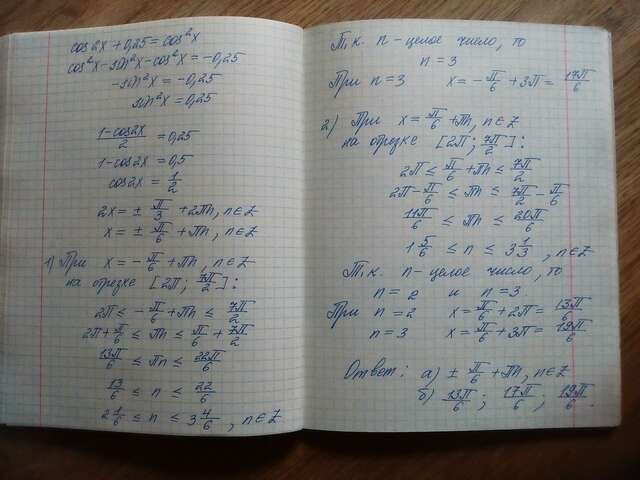 cos2x + 0,25 = cos²x
cos²x - sin²x - cos²x = -0,25
-sin²x = -0,25
sin²x = 0,25
(1-cos2x)/2 = 0,25
1-cos2x = 0,5
cos2x = 1/2
2x = ± π/3 + 2πn, n∈Z
x = ± π/6 + πn, n∈Z
1) При x = -π/6 + πn, n∈Z
на отрезке [2π; 7π/2]:
2π ≤ -π/6 + πn ≤ 7π/2
2π + π/6 ≤ πn ≤ π/6 + 7π/2
13π/6 ≤ πn ≤ 22π/6
13/6 ≤ n ≤ 22/6
2 1/6 ≤ n ≤ 3 4/6, n∈Z
Т.к. n - целое число, то
n = 3
При n = 3 x = -π/6 + 3π = 17π/6
2) При x = π/6 + πn, n∈Z
на отрезке [2π; 7π/2]:
2π ≤ π/6 + πn ≤ 7π/2
2π - π/6 ≤ πn ≤ 7π/2 - π/6
11π/6 ≤ πn ≤ 20π/6
1 5/6 ≤ n ≤ 3 1/3, n∈Z
Т.к. n - целое число, то
n = 2 и n = 3
При n = 2 x = π/6 + 2π = 13π/6
n = 3 x = π/6 + 3π = 19π/6
Ответ: а) ± π/6 + πn, n∈Z
б) 13π/6; 17π/6; 19π/6.